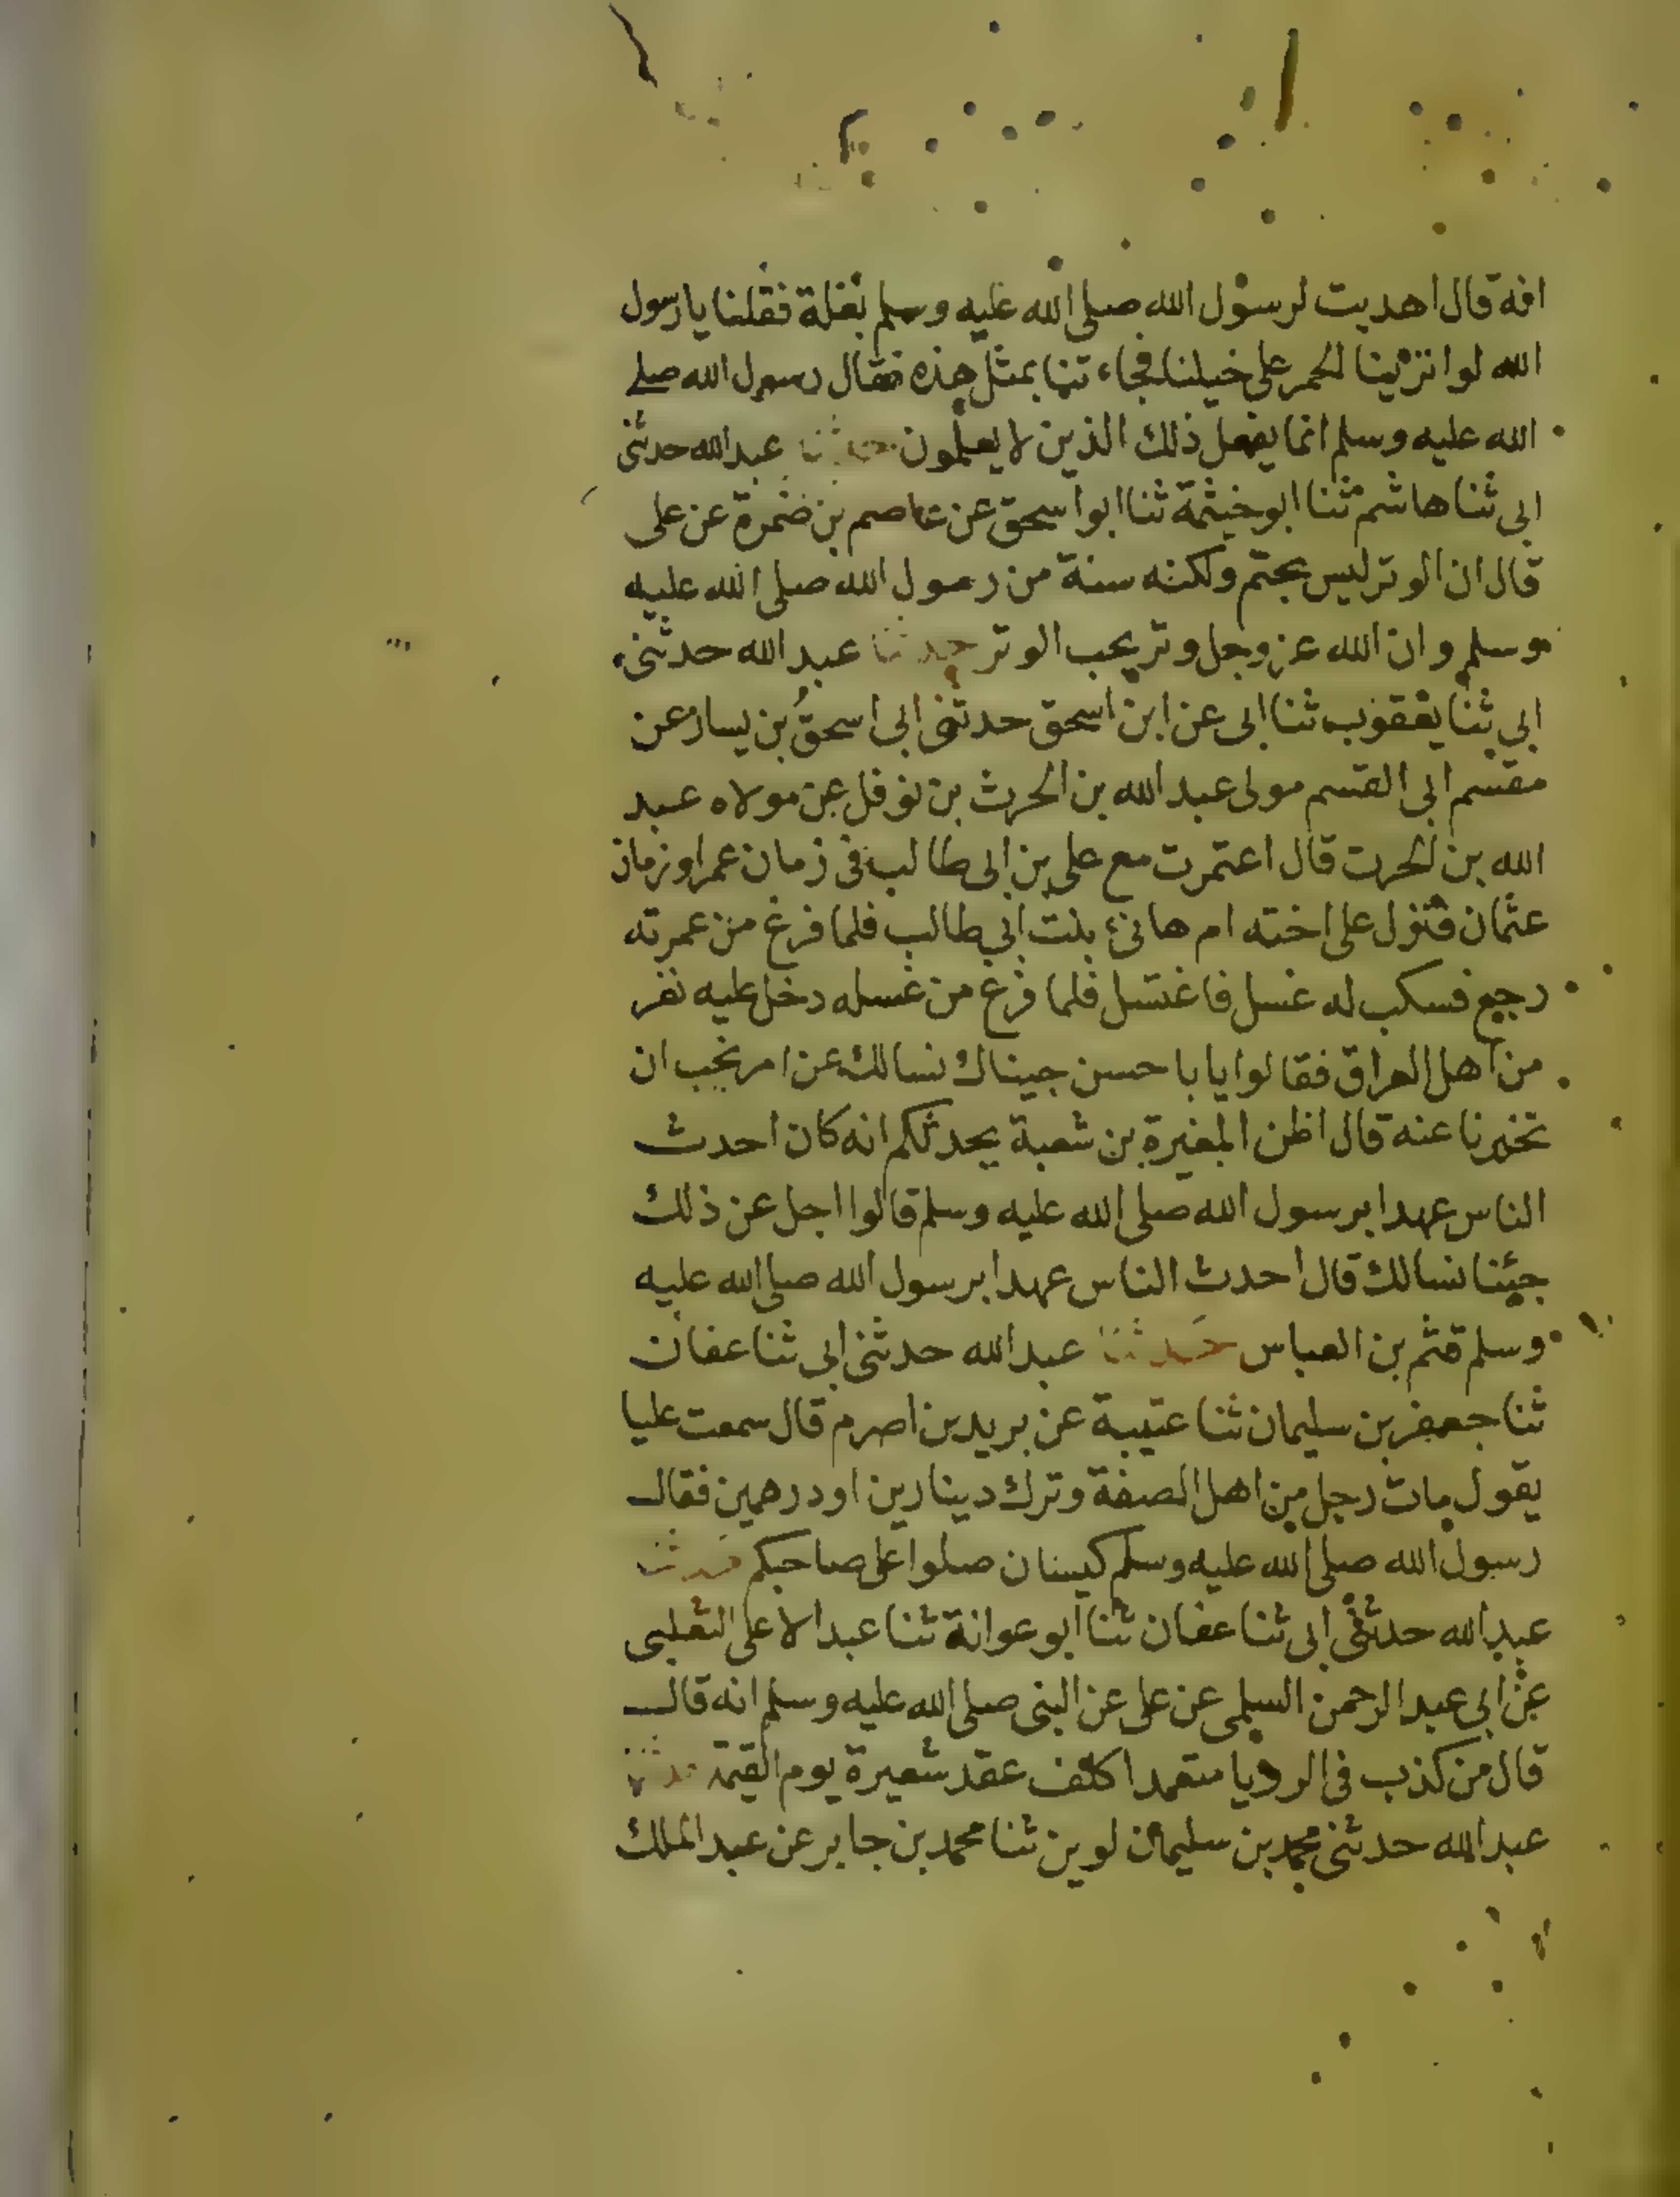 انه قال اهديت لرسول الله صلى الله عليه وسلم بغلة فقلنا يا رسول
الله لو انزينا الحمر على خيلنا فجاءتنا بمثل هذه فقال رسول الله صلى
الله عليه وسلم انما يفعل ذلك الذين لا يعلمون حدثنا عبد الله حدثنى
ابى ثنا هاشم ثنا ابو خيثمة ثنا ابو اسحق عن عاصم بن ضمرة عن على
قال ان الوتر ليس بحتم ولكنه سنة من رسول الله صلى الله عليه
وسلم وان الله عز وجل وتر يحب الوتر حدثنا عبد الله حدثنى
ابى ثنا يعقوب ثنا ابى عن ابن اسحق حدثنى ابى اسحق بن يسار عن
مقسم ابى القسم مولى عبد الله بن الحرث بن نوفل عن مولاه عبد
الله بن الحرث قال اعتمرت مع على بن ابى طالب فى زمان عمر او زمان
عثمان فنزل على اخته ام هانئ بنت ابى طالب فلما فرغ من عمرته
رجع فسكب له غسل فاغتسل فلما فرغ من غسله دخل عليه نفر
من اهل العراق فقالوا يا با حسن جيناك نسالك عن امر نحب ان
تخبرنا عنه قال اظن المغيرة بن شعبة يحدثكم انه كان احدث
الناس عهدا برسول الله صلى الله عليه وسلم قالوا اجل عن ذلك
جئنا نسالك قال احدث الناس عهدا برسول الله صلى الله عليه
وسلم قثم بن العباس حدثنا عبد الله حدثنى ابى ثنا عفان
ثنا جعفر بن سليمان ثنا عتيبة عن بريد بن اصرم قال سمعت عليا
يقول مات رجل من اهل الصفة وترك دينارين او درهمين فقال
رسول الله صلى الله عليه وسلم كيسان صلوا على صاحبكم حدثنا
عبد الله حدثنى ابى ثنا عفان ثنا ابو عوانة ثنا عبد الاعلى الثعلبى
عن ابى عبد الرحمن السلمى عن على عن النبى صلى الله عليه وسلم انه قال
قال من كذب فى الرويا متعمدا كلف عقد شعيرة يوم القيمة حدثنا
عبد الله حدثنى محمد بن سليمان لوين ثنا محمد بن جابر عن عبد الملك